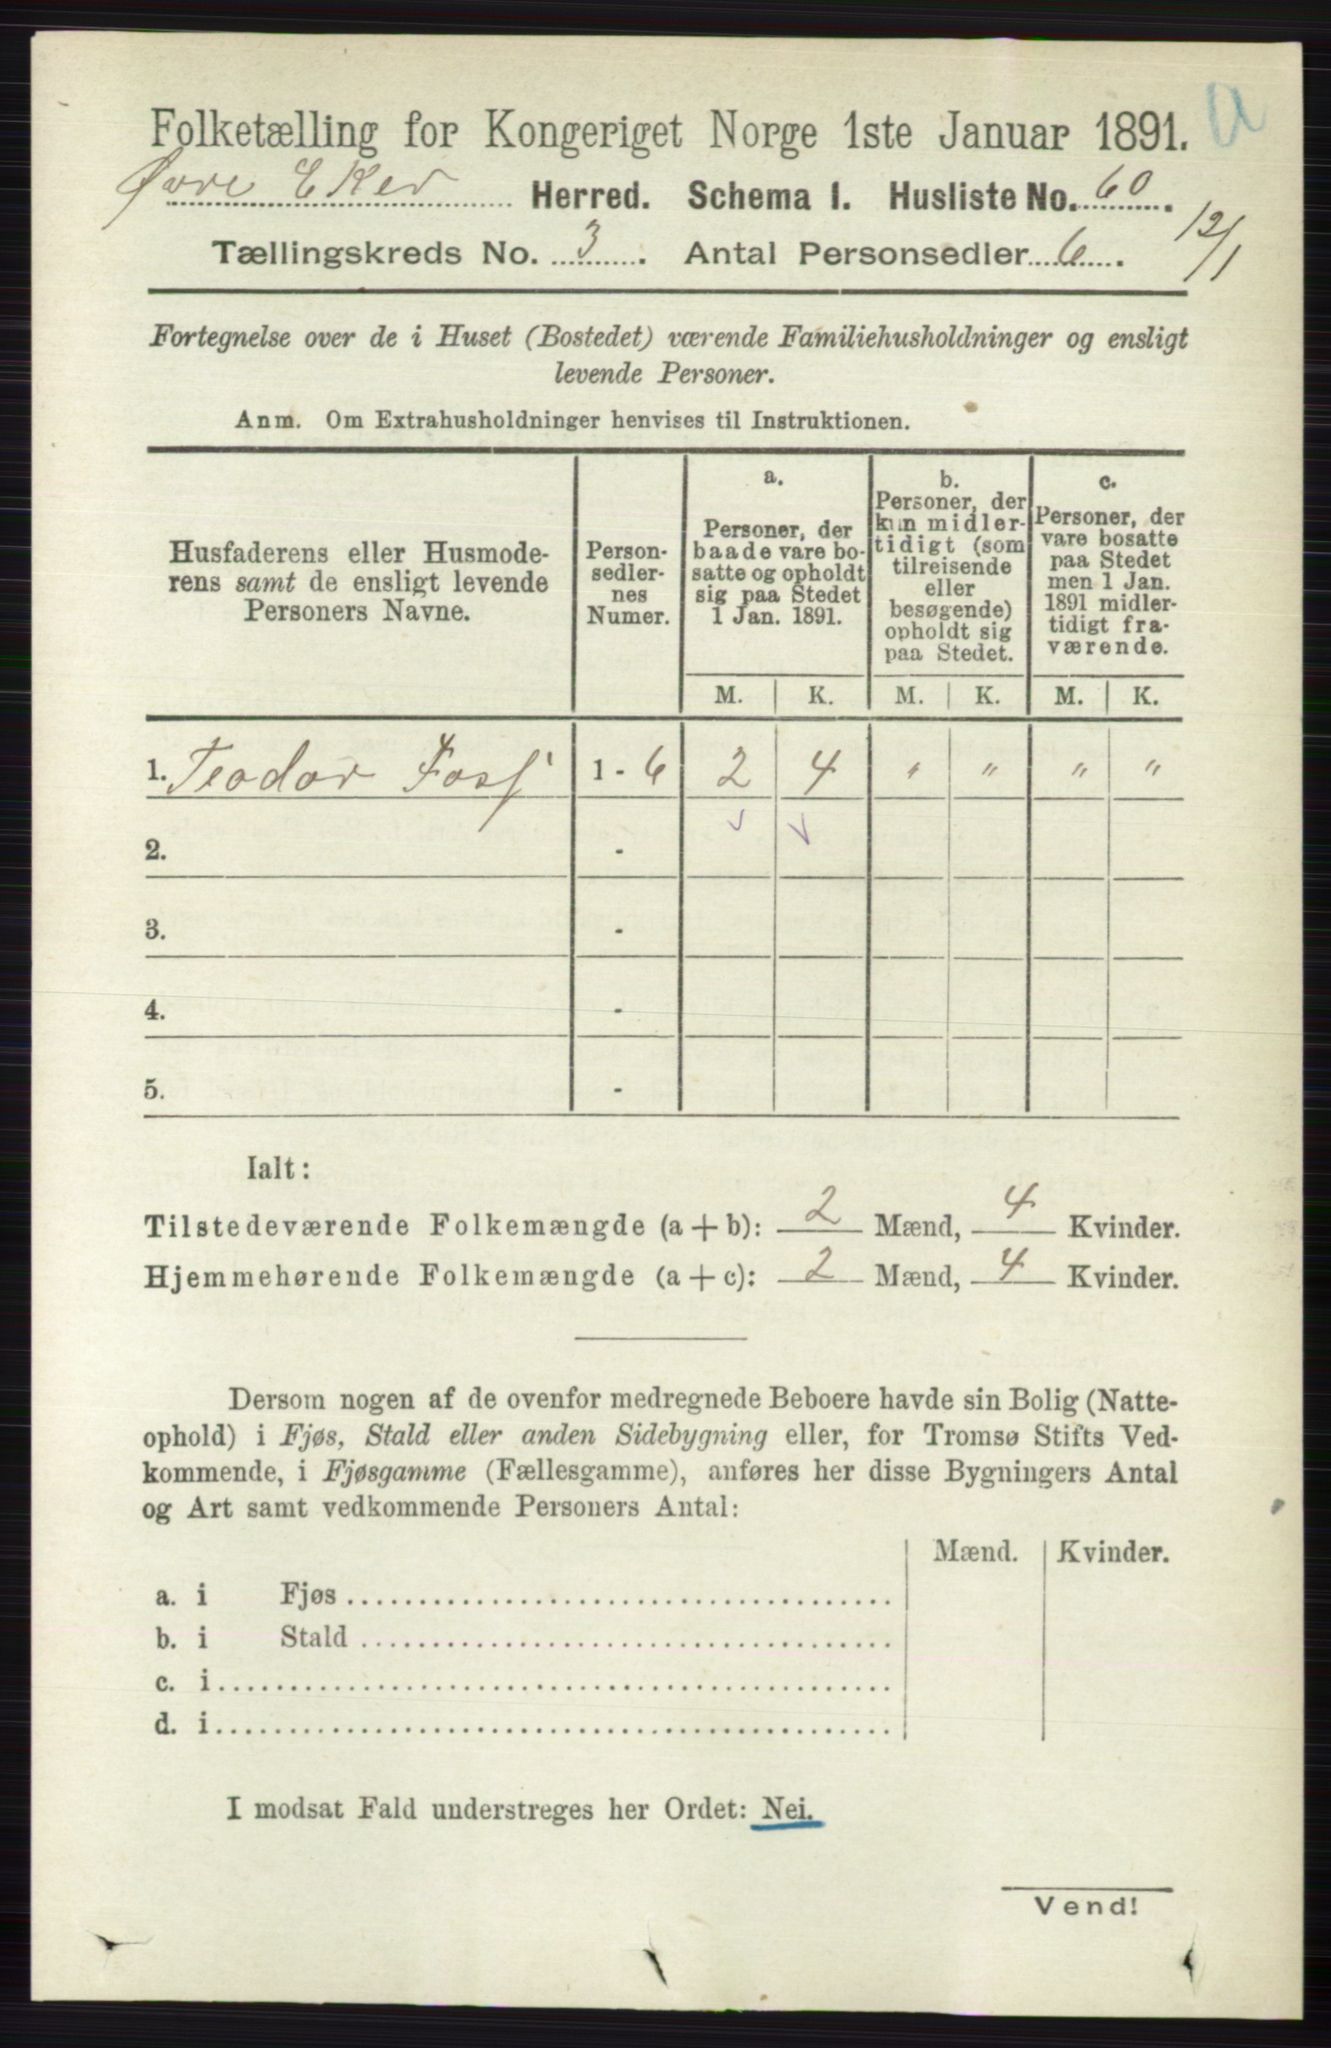 a
Folketælling for Kongeriget Norge 1ste Januar 1891.
Øvre Eker Herred. Schema 1. Husliste No. 60
12/1
Tællingskreds No. 3. Antal Personsedler 6.
Fortegnelse over de i Huset (Bostedet) værende Familiehusholdninger og ensligt
levende Personer.
Anm. Om Extrahusholdninger henvises til Instruktionen.
Husfaderens eller Husmode-
rens samt de ensligt levende
Personers Navne.
Person-
sedler-
nes
Numer.
a.
Personer, der
baade vare bo-
satte og opholdt
sig paa Stedet
1 Jan. 1891.
b.
Personer, der
kun midler-
tidigt (som
tilreisende
eller
besøgende)
opholdt sig
paa Stedet.
c.
Personer, der
vare bosatte
paa Stedet
men 1 Jan.
1891 midler-
tidigt fra-
værende.
M. K. M. K. M. K.
1. Teodor Foss 1 - 6 2 4 " " " "
2. -
3. -
4. -
5. -
Ialt:
Tilstedeværende Folkemængde (a + b): 2 Mænd, 4 Kvinder.
Hjemmehørende Folkemængde (a + c): 2 Mænd, 4 Kvinder.
Dersom nogen af de ovenfor medregnede Beboere havde sin Bolig (Natte-
ophold) i Fjøs, Stald eller anden Sidebygning eller, for Tromsø Stifts Ved-
kommende, i Fjøsgamme (Fællesgamme), anføres her disse Bygningers Antal
og Art samt vedkommende Personers Antal:
Mænd. Kvinder.
a. i Fjøs
b. i Stald
c. i
d. i
I modsat Fald understreges her Ordet: Nei.
Vend!